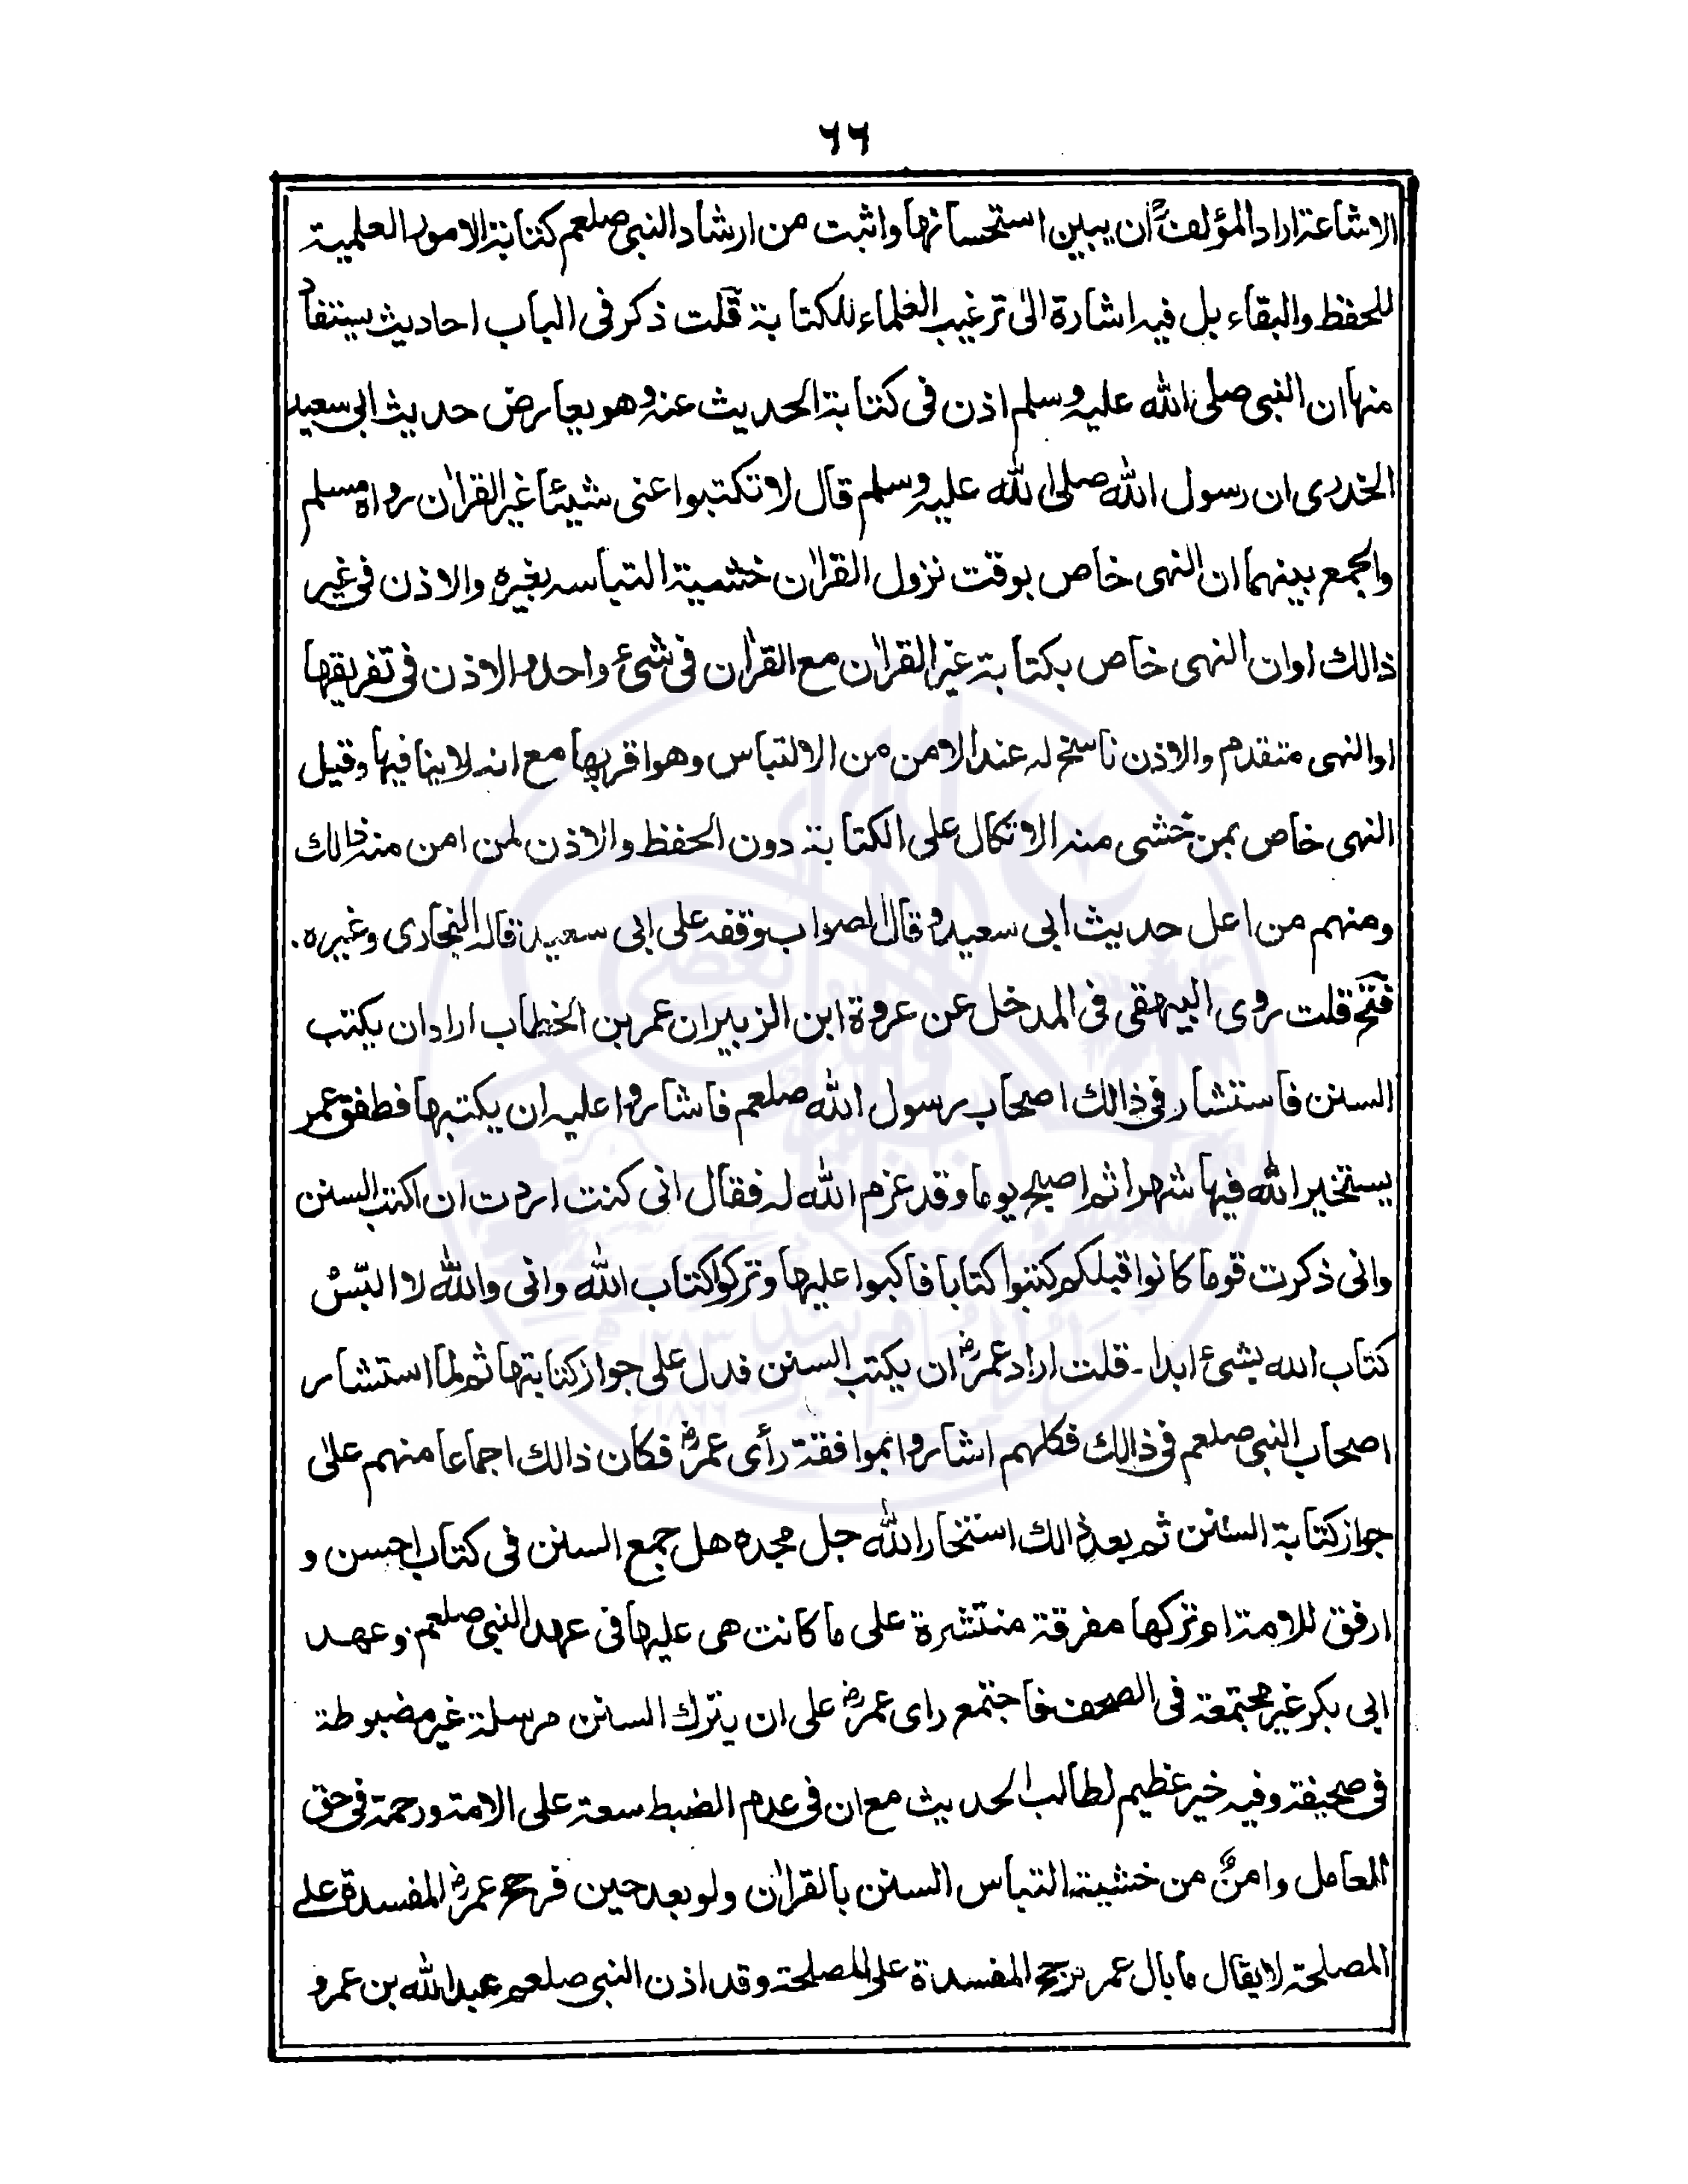 ٦٦
الاشاعة اراد المؤلفؒ ان يبين استحسانها واثبت من ارشاد النبي صلعم كتابة الامور العلمية
للحفظ والبقاء بل فيه اشارة الى ترغيب العلماء للكتابة قلت ذكر فى الباب احاديث يستفاد
منها ان النبى صلى الله عليه وسلم اذن فى كتابة الحديث عنه وهو يعارض حديث ابى سعيد
الخدرى ان رسول الله صلى الله عليه وسلم قال لا تكتبوا عنى شيئا غير القراٰن رواه مسلم
والجمع بينهما ان النهى خاص بوقت نزول القراٰن خشية التباسه بغيره والاذن فى غير
ذالك اوان النهى خاص بكتابة غير القراٰن مع القراٰن فى شئ واحد والاذن فى تفريقها
او النهى متقدم والاذن ناسخ له عند الامن من الالتباس وهو اقربها مع انه لا ينافيها وقيل
النهى خاص بمن خشى منه الاتكال على الكتابة دون الحفظ والاذن لمن امن منه ذالك
ومنهم من اعل حديث ابى سعيد وقال الصواب وقفه على ابى سعيد قاله البخارى وغيره.
فتح قلت روى البيهقى فى المدخل عن عروة ابن الزبير ان عمر بن الخطاب اراد ان يكتب
السنن فاستشار فى ذالك اصحاب رسول الله صلعم فاشاروا عليه ان يكتبها فطفق عمر
يستخير الله فيها شهرا ثم اصبح يوما وقد عزم الله له فقال انى كنت اردت ان اكتب السنن
وانى ذكرت قوما كانوا قبلكم كتبوا كتابا فاكبوا عليها وتركوا كتاب الله وانى والله لا البّسُ
كتاب الله بشئ ابدا ـ قلت اراد عمرؓ ان يكتب السنن فدل على جواز كتابتها ثم لما استشار
اصحاب النبى صلعم فى ذالك فكلهم اشاروا بموافقة رأى عمرؓ فكان ذالك اجماعا منهم علىٰ
جواز كتابة السنن ثم بعد ذالك استخار الله جل مجده هل جمع السنن فى كتاب احسن و
ارفق للامة او تركها مفرقة منتشرة على ما كانت هى عليها فى عهد النبى صلعم وعهد
ابى بكر غير مجتمعة فى الصحف فاجتمع راى عمرؓ على ان يترك السنن مرسلة غير مضبوطة
فى صحيفة وفيه خير عظيم لطالب الحديث مع ان فى عدم الضبط سعة على الامة ورحمة فى حق
العامل وامنٌ من خشية التباس السنن بالقراٰن ولو بعد حين فرجح عمرؓ المفسدة على
المصلحة لا يقال ما بال عمر يرجح المفسدة على المصلحة وقد اذن النبى صلعم عبد الله بن عمرو